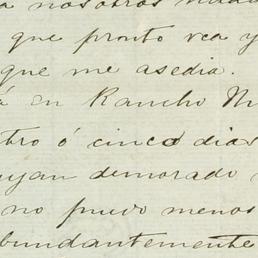 a nosotros nada
que pronto vea y
que me asedia.
á en Rancho
tro ó cinco dias
uyan demorado
no puedo menos
bundantemente